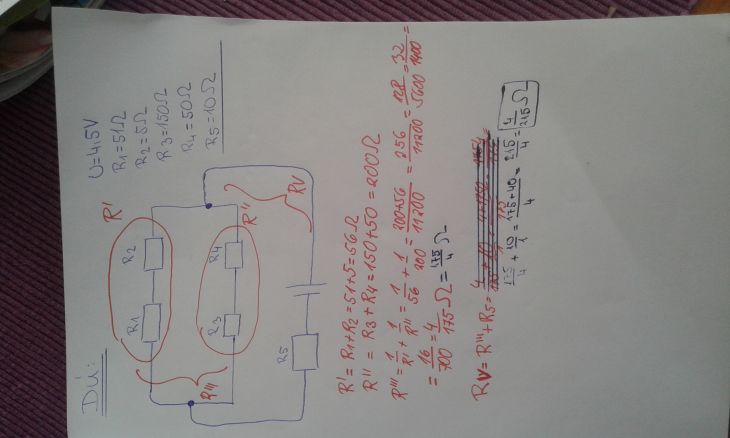 DÚ:
U=4,5V
R1=51Ω
R2=5Ω
R3=150Ω
R4=50Ω
R5=10Ω
R'
R1 R2
R3 R4
R''
R'''
RV
R5
R' = R1+R2=51+5=56Ω
R'' = R3+R4=150+50=200Ω
R''' = 1/R' + 1/R'' = 1/56 + 1/200 = 200+56/11200 = 256/11200 = 128/5600 = 32/1400 =
= 16/700 = 4/175 Ω = 175/4 Ω
RV = R'''+R5=
175/4 + 10/1 = 175+40/4 = 215/4 = 4/215 Ω